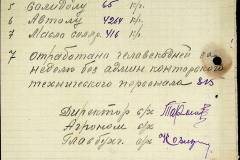 5 Солидолу 65 кг.
6 Автолу 4264 кг.
7 Масла солор. 416 кг.
7 Отработана человекодней за
неделю без админ конторско
технического персонала 325
Директор с/х
Агроном с/х
Главбух. с/х